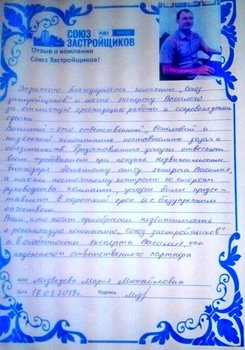 СОЮЗ
ЗАСТРОЙЩИКОВ
Отзыв о компании
Союз Застройщиков!
Выражаю благодарность компании „Союз
застройщиков" и лично эксперту Василию
за отличную организацию работы и сопровождение
сделки.
Василий - это ответственный, вежливый и
надежный исполнитель поставленных задач и
обязательств. Предоставленные услуги отвечают
всем требованиям при покупке недвижимости.
Благодаря большому опыту эксперта Василия,
а также постоянному контролю со стороны
руководства компании, услуги были предос-
тавлены в короткий срок и с безупречным
качеством.
Всем, кто хочет приобрести недвижимость
я рекомендую компанию „Союз застройщиков"
а в особенности эксперта Василия, как
надежного и ответственного партнера
Медведева Мария Михайловна
Дата 17.03.2019г. Подпись